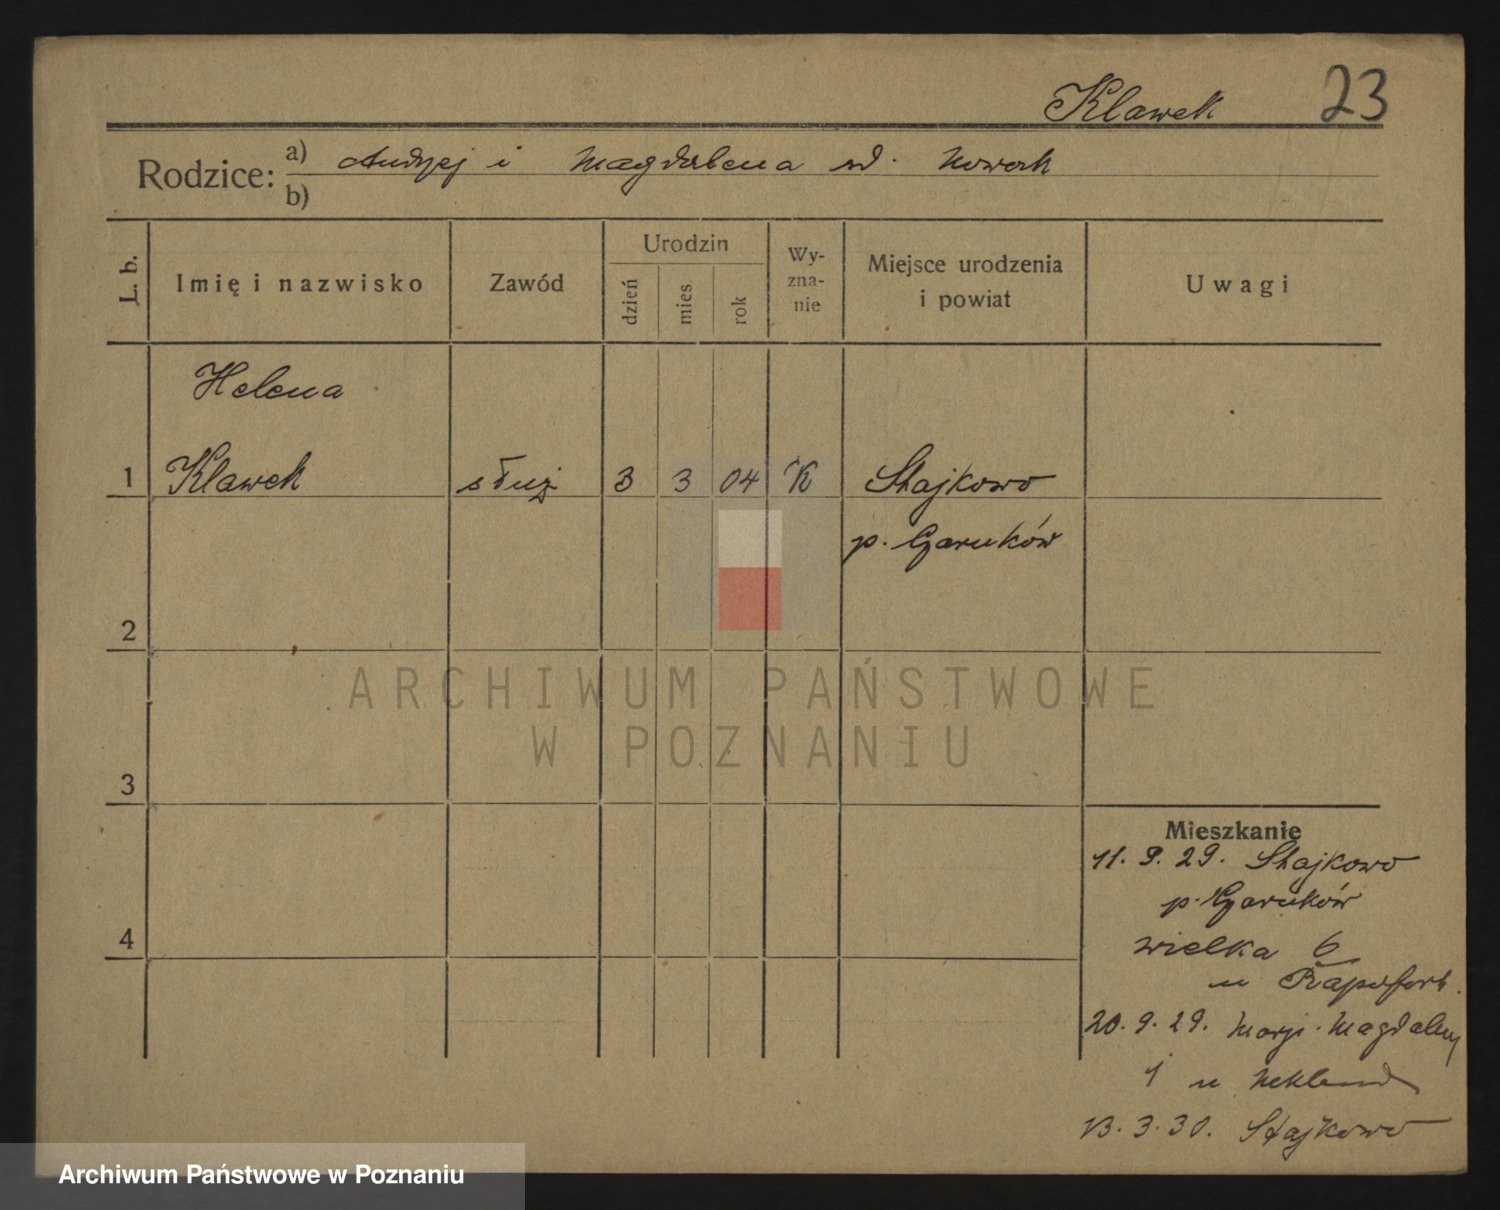 Klawek 23
Rodzice: a) Andrzej i Magdalena zd. Nowak
b)
L. b.
Imię i nazwisko
Zawód
Urodzin
dzień
mies
rok
Wy-
zna-
nie
Miejsce urodzenia
i powiat
Uwagi
Helena
1 Klawek służ 3 3 04 K Stajkowo
p. Czarnków
2
3
4
Mieszkanie
11. 9. 29. Stajkowo
p. Czarnków
Wielka 6
u
20. 9. 29. Marji-Magdaleny
1 u
13. 3. 30. Stajkowo
ARCHIWUM PAŃSTWOWE
W POZNANIU
Archiwum Państwowe w Poznaniu